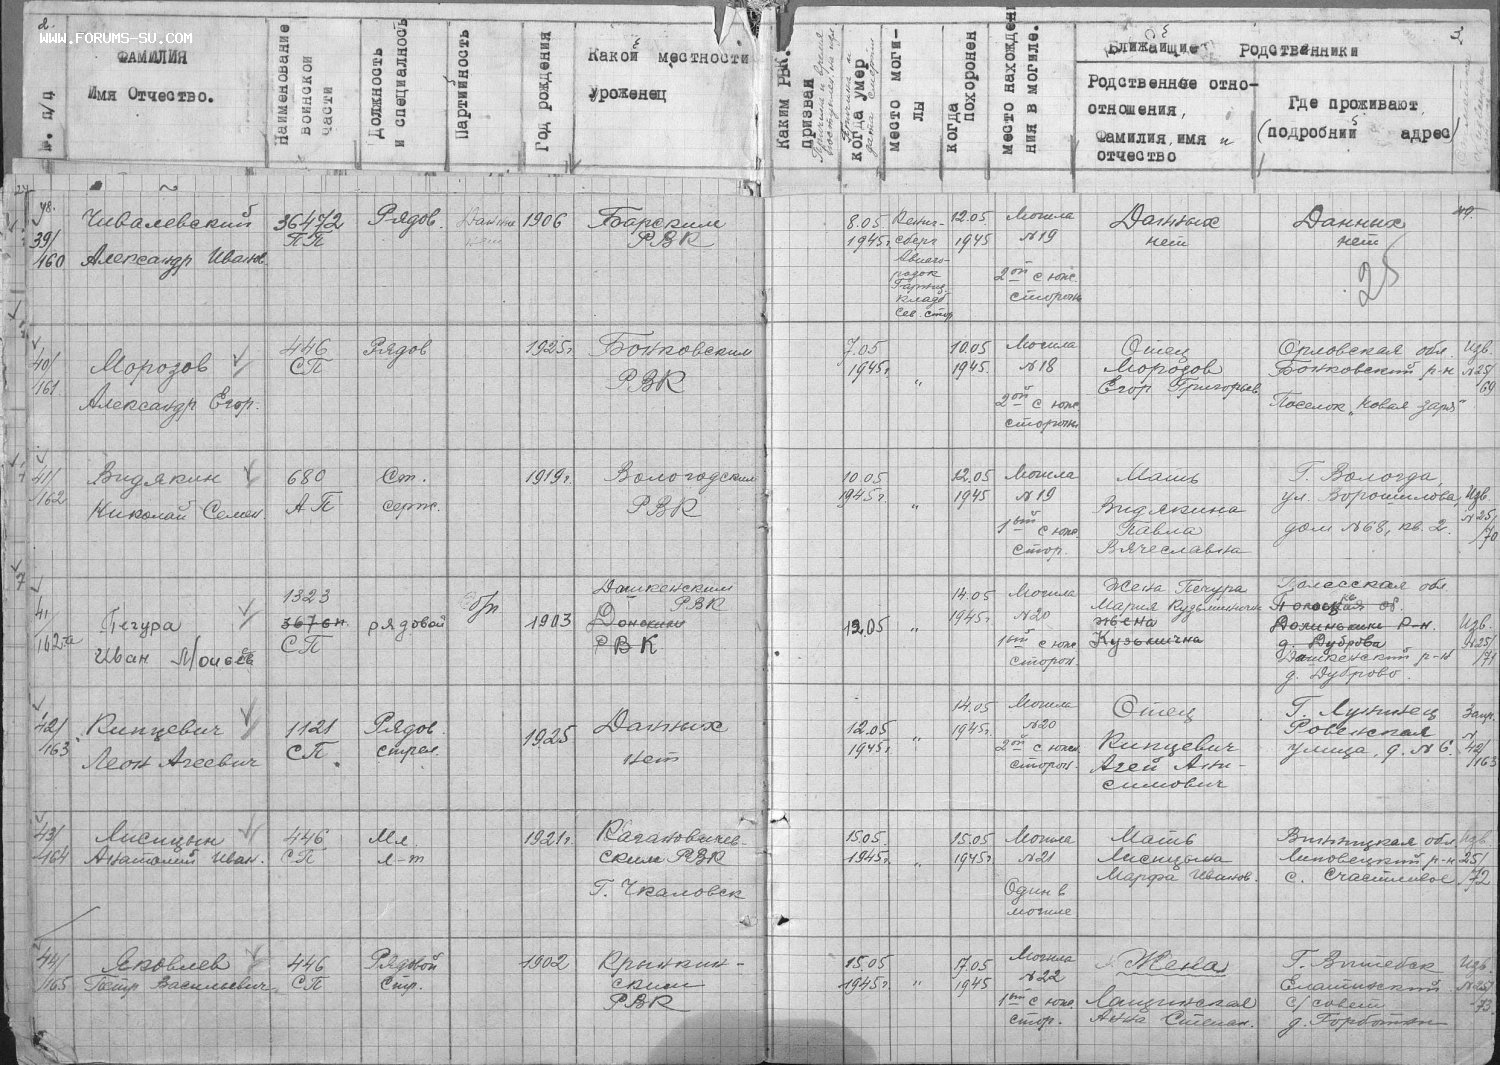 2.
WWW.FORUMS-SU.COM
ФАМИЛИЯ
Имя Отчество.
Наименование воинской части
Должность и специальность
Партийность
Год рождения
Какой местности
уроженец
Каким РВК.
призван
когда умер
место моги-
лы
когда
похоронен
место нахожден
ния в могиле.
Ближайщие Родственники
3
Родственное отно-
отношения,
Фамилия, имя и
отчество
Где проживают
(подробний адрес)
48.
39/
160
Чивалевский
Александр Иванов.
36472
ПП
Рядов.
1906
Барским
РВК
8.05
1945г.
Кениг-
сберг
Авиаго-
родок
кладб
Сев. стор
12.05
1945
Могила
№19
2ой с юж.
стороны
Данных
нет
Данных
нет
25
40/
161
Морозов
Александр Егор.
446
СП
Рядов
1925г
Бонковским
РВК
7.05
1945г.
"
10.05
1945.
Могила
№18
2ой с юж.
стороны
Отец
Морозов
Егор Григорьев.
Орловская обл.
Бонковский р-н
Поселок „Новая заря"
Изв.
№25/
69
41/
162
Видякин
Николай Семен.
680
АП
Ст.
серж.
1919г.
Вологодским
РВК
10.05
1945г.
"
12.05
1945
Могила
№19
1ый с юж.
стор.
Мать
Видякина
Павла
Вячеславна
Г. Вологда,
ул. Ворошилова,
дом №68, кв. 2.
Изв.
№25/
70
41/
162а
Печура
Иван Моисев
1323
367сп.
СП
рядовой
б/п
1903
Дашкенским
РВК
Донским
РВК
12.05
"
14.05
1945г.
Могила
№20
1ый с юж.
сторон.
Жена Печура
Мария Кузьминична
жена
Кузьмична
Полесская обл.
д. Дуброва
Дашкенский р-н
д. Дуброво.
Изв.
№25/
71
42/
163
Кипцевич
Леон Агеевич
1121
СП.
Рядов.
стрел.
1925
Данных
нет
12.05
1945г.
"
14.05
1945г.
Могила
№20
2ой с юж.
сторон.
Отец
Кипцевич
Агей Ани-
симович
Г. Лунинец
Ровенская
улица, д. №6.
Запр.
№
42/
163
43/
164
Лисицын
Анатолий Иван.
446
СП
Мл.
л-т
1921г.
Кагановичев-
ским РВК
Г. Чкаловск
15.05
1945г.
"
15.05
1945г
Могила
№21
Один в
могиле
Мать
Лисицына
Марфа Иванов.
Винницкая обл
Липовецкий р-н
с. Счастливое
Изв
25/
72
44/
165
Яковлев
Петр Васильевич
446
СП
Рядовой
Стр.
1902
Крынкин-
ским
РВК
15.05
1945г.
"
17.05
1945
Могила
№22
1ый с юж.
стор.
Жена
Лащинская
Анна Степан.
Г. Витебск
с/совет
д. Горботян
Изв.
№25/
73.